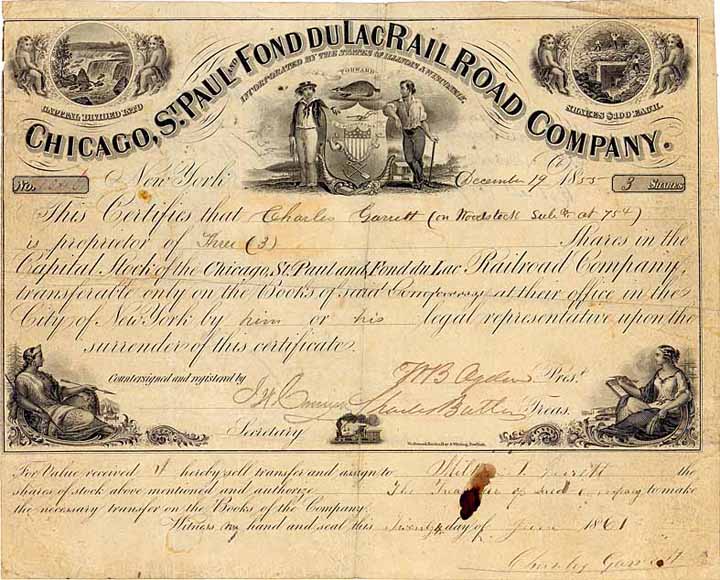 CHICAGO, ST. PAUL AND FOND DU LAC RAIL ROAD COMPANY.
INCORPORATED BY THE STATES OF ILLINOIS & WISCONSIN.
FORWARD
CAPITAL DIVIDED INTO
SHARES $100 EACH.
No.
New York December 19 1855
3 SHARES
This Certifies that Charles Garrett (on Woodstock Sub at 75¢)
is proprietor of Three (3) Shares in the
Capital Stock of the Chicago, St. Paul and Fond du Lac Railroad Company,
transferable only on the Books of said Company at their office in the
City of New York by him or his legal representative upon the
surrender of this certificate.
Countersigned and registered by
W B Ogden Prest.
Charles Butler Treas.
Secretary
For Value received I hereby sell transfer and assign to the
shares of stock above mentioned and authorize The Treasurer of said Company to make
the necessary transfer on the Books of the Company.
Witness my hand and seal this day of June 1861
Charles Garrett